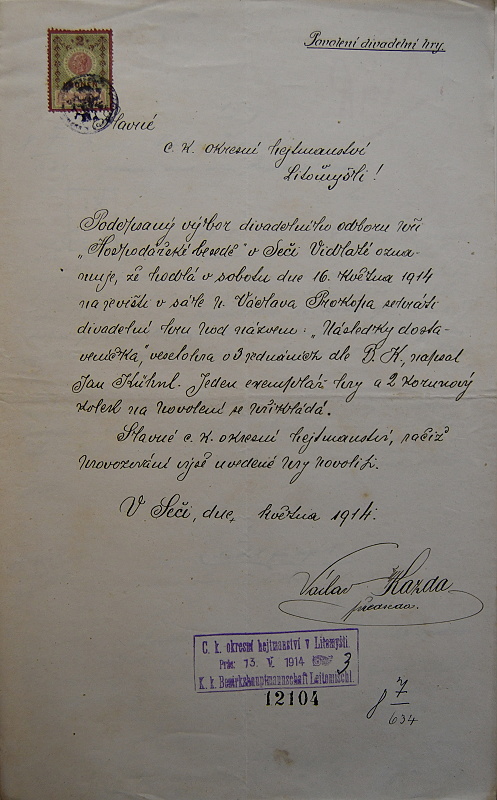 Povolení divadelní hry.
2
Slavné
c. k. okresní hejtmanství
Litomyšli!
Podepsaný výbor divadelního odboru při
„Hospodářské besedě" v Seči Vidlaté ozna-
muje, že hodlá v sobotu dne 16. května 1914
na jevišti v sále p. Václava Prokopa sehráti
divadelní hru pod názvem: „Následky dosta-
veníčka," veselohra o 3 jednáních dle P. K. napsal
Jan Kühnl. Jeden exemplář hry a 2 korunový
kolek na povolení se přikládá.
Slavné c. k. okresní hejtmanství, račiž
provozování výše uvedené hry povoliti.
V Seči, dne, května 1914.
Václav Kazda
předseda.
C. k. okresní hejtmanství v Litomyšli.
Präs: 13. V. 1914 3
K. k. Bezirkshauptmannschaft Leitomischl.
12104
7
634